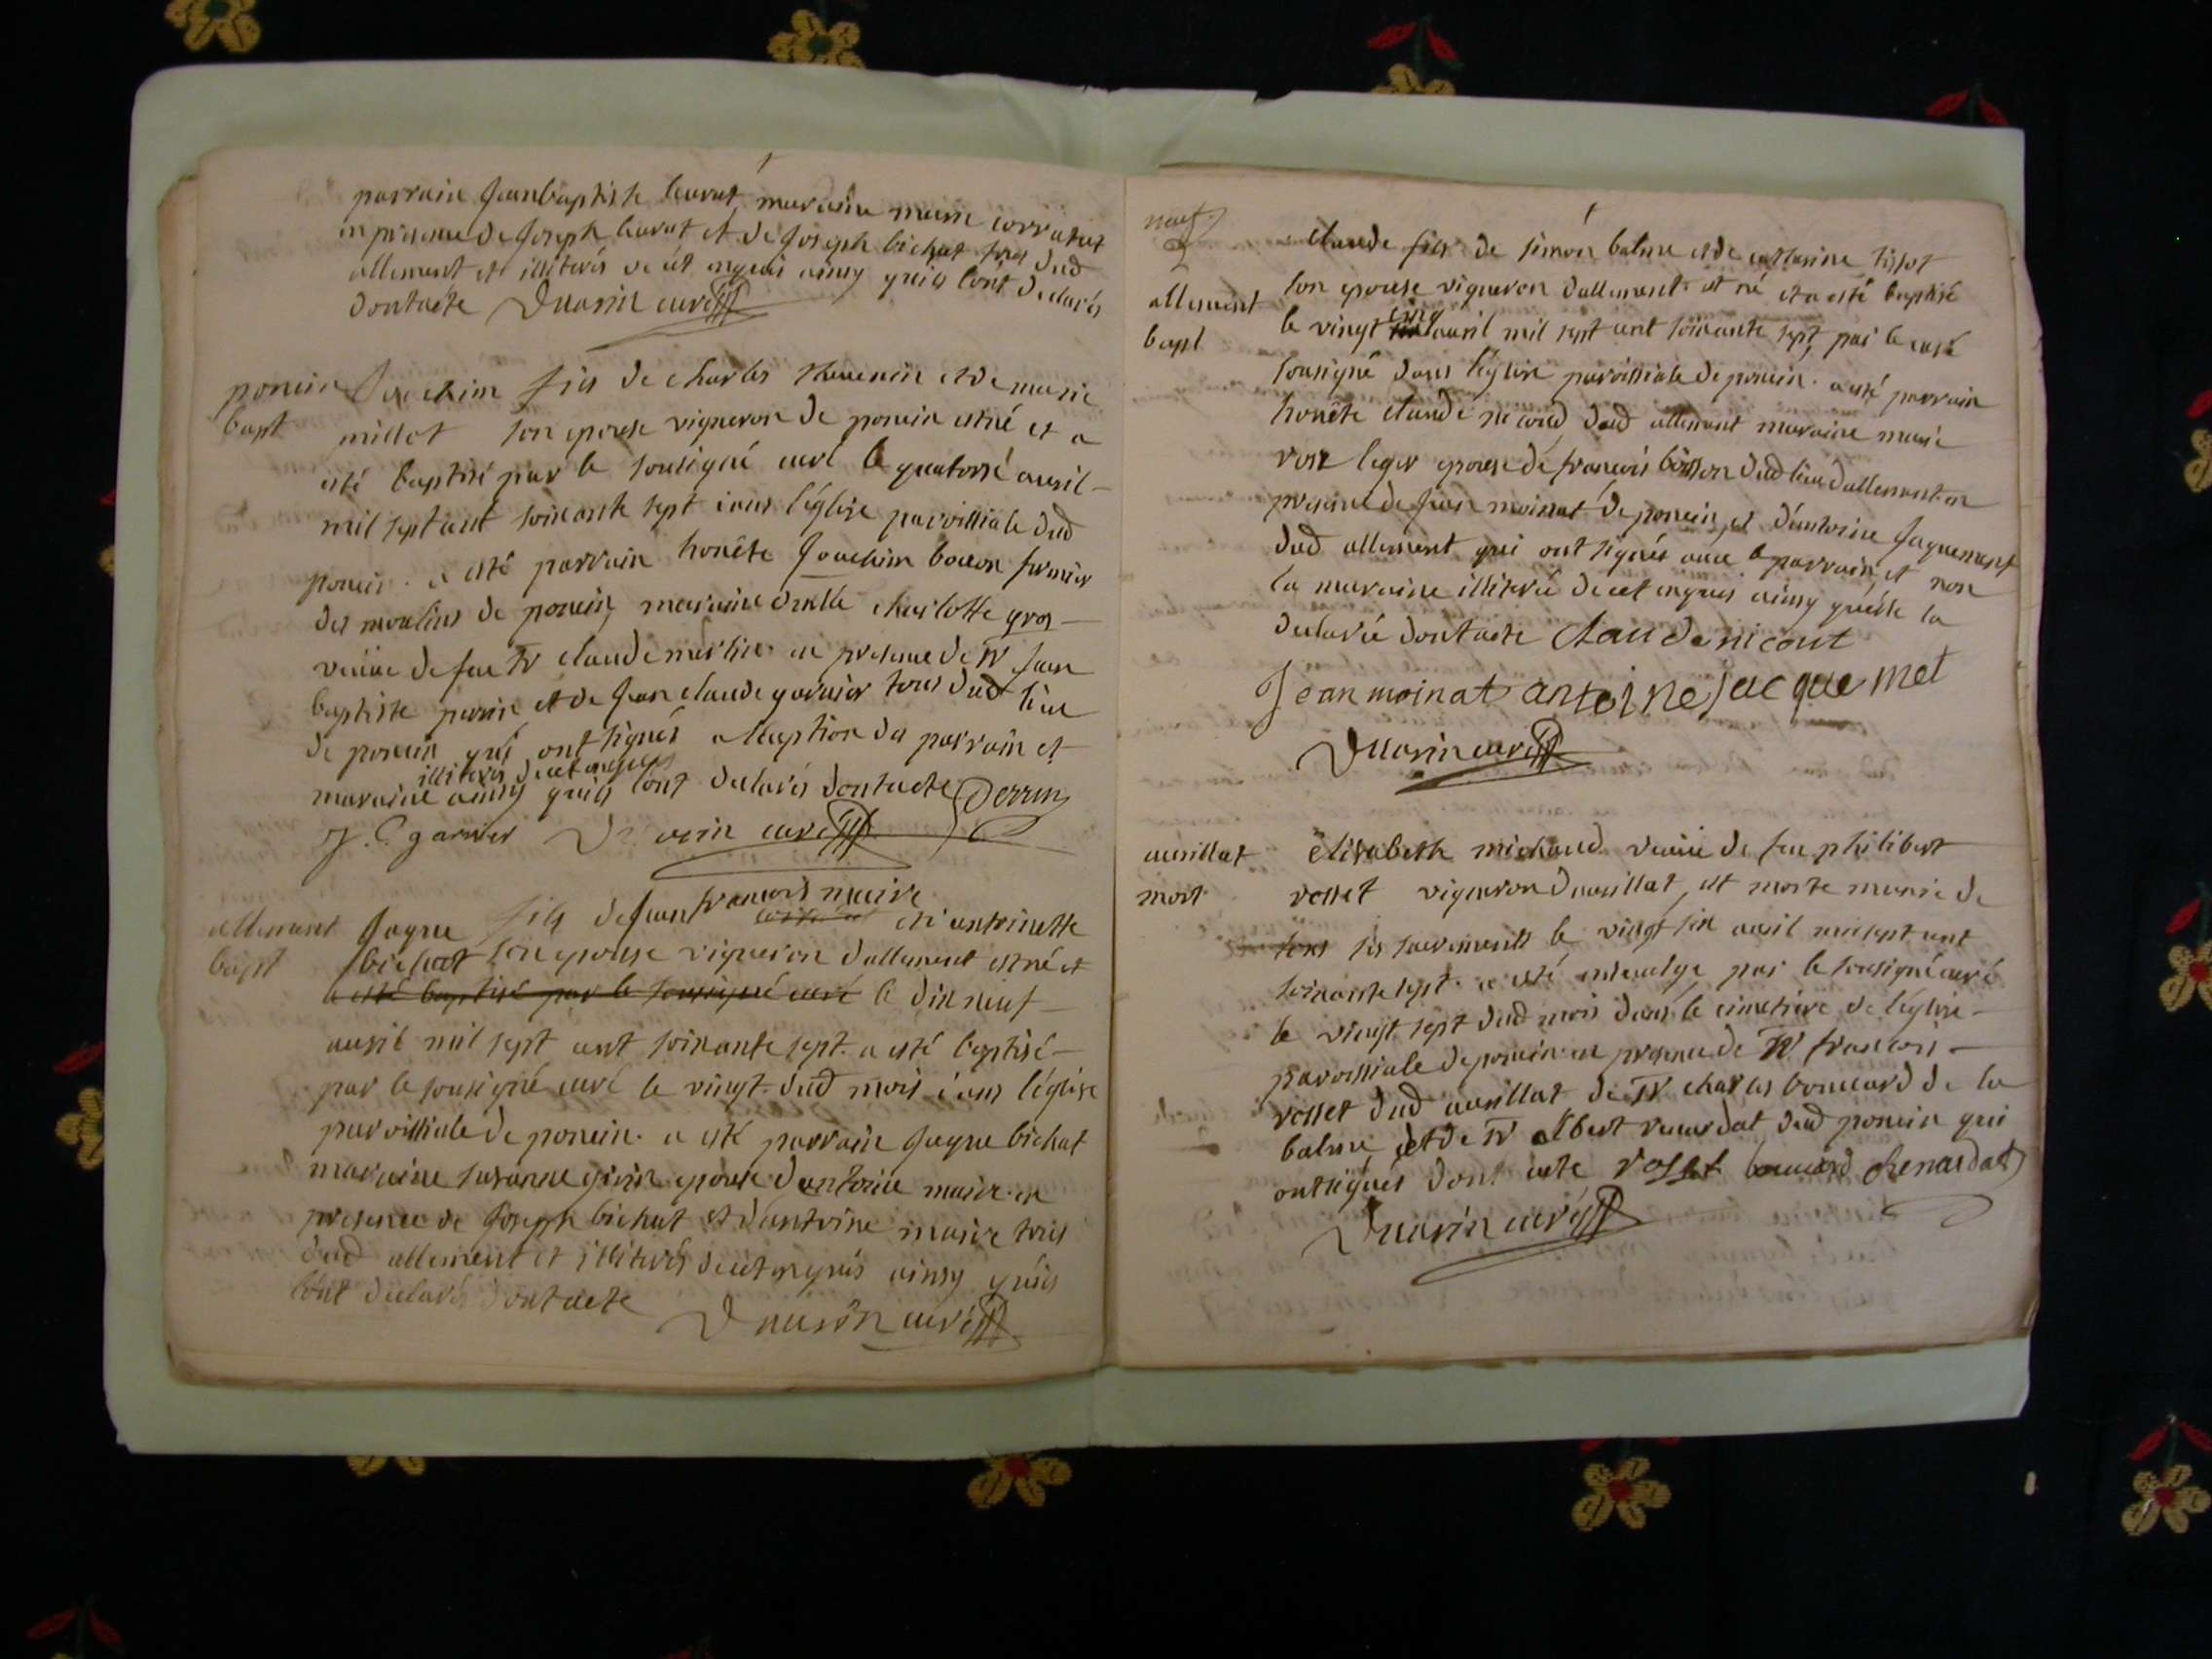 parrain Jeanbaptiste leurat, maraine marie corratat
en presence de Joseph leurat et de Joseph bichat tous dud
allement et illiterés de ce enquis ainsy quils l'ont declarés
dontacte Duarin curé
poncin Joachim fils de charles thevenin et de marie
bapt millet son epouse vigneron de poncin est né et a
esté baptisé par le sousigné curé le quatorse auril
mil sept cent soixante sept dans l'église parroissiale dud
poncin. a esté parrain honête Joachim bocon fermier
des moulins de poncin, maraine dmlle charlotte gros
veuue de feu Sr claude merlin. en presence de Sr Jean
baptiste perrin et de Jean claude garnier tous dud lieu
de poncin qui ont signés a l'exeption du parrain et
illiterés de cet enquis
maraine ainsy quils l'ont declarés dontacte Perrin
J. C. garnier Duarin curé
allement Jaque fils de Jean francois maire et d'antoinette
bapt bichat son epouse vigneron d'allement est né et
a esté baptisé par le sousigné curé le dix neuf
auril mil sept cent soixante sept. a esté baptisé
par le sousigné curé le vingt dud mois dans l'église
parroissiale de poncin. a esté parrain Jaque bichat
maraine susanne girin epouse d'antoine maire. en
presence de Joseph bichat et d'antoine maire tous
dud allement et illiterés de cet enquis ainsy quils
l'ont declarés dontacte Duarin curé
neuf
claude fils de simon balme et de catherine tissot
allement son epouse vigneron d'allement. est né et a esté baptisé
bapt le vingt cinq auril mil sept cent soixante sept, par le curé
sousigné dans l'église parroissiale de poncin. a esté parrain
honête claude nicoud dud allement maraine marie
rose leger epouse de francois bosson dud lieu d'allement. en
presence de Jean moinat de poncin, et d'antoine Jaquemet
dud allement qui ont signés auec le parrain et non
la maraine illiterée de cet enquis ainsy quelle la
declarée dontacte claude nicout
Jean moinat antoine jacquemet
Duarin curé
aurillat Elisabeth michaud veuue de feu philibert
mort rosset vigneron d'aurillat, est morte munie de
tous ses sacrements le vingt six auril mil sept cent
soixante sept. a esté inhumée par le sousigné curé
le vingt sept dud mois dans le cimetiere de l'église
paroissiale de poncin. en presence de Sr francois
rosset dud aurillat de Sr charles bouuard de la
balme, et de Sr albert renardat dud poncin qui
ont signés dont acte rosset bouuard Renardat
Duarin curé